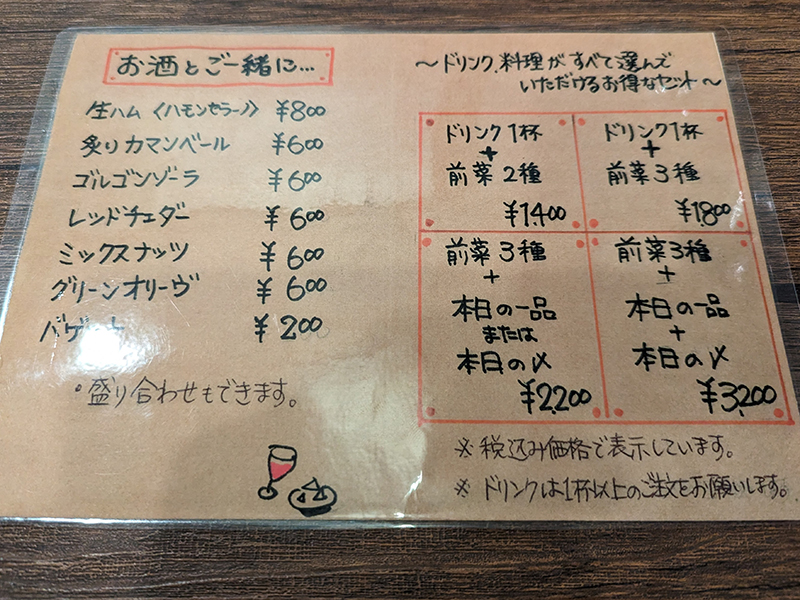 お酒とご一緒に…
生ハム〈ハモンセラーノ〉 ¥800
炙りカマンベール ¥600
ゴルゴンゾーラ ¥600
レッドチェダー ¥600
ミックスナッツ ¥600
グリーンオリーヴ ¥600
バゲット ¥200
・盛り合わせもできます。
〜ドリンク、料理がすべて選んで
いただけるお得なセット〜
ドリンク1杯
+
前菜2種
¥1,400
ドリンク1杯
+
前菜3種
¥1,800
前菜3種
+
本日の一品
または
本日の〆
¥2,200
前菜3種
+
本日の一品
+
本日の〆
¥3,200
※税込み価格で表示しています。
※ドリンクは1杯以上のご注文をお願いします。